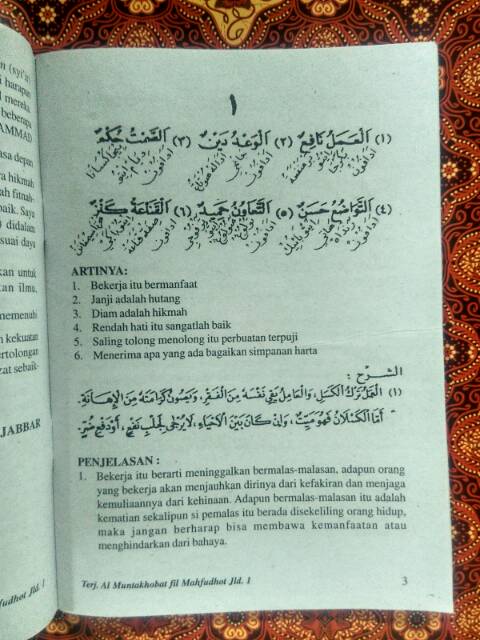 n (syi'ir)
harapan
mereka
beberapa
AMMAD
asa depan
a hikmah
ah fitnah-
baik. Saya
) didalam
suai daya
kan untuk
kan ilmu,
memenuhi
kekuatan
ertolongan
zat sebaik-
JABBAR
fudhot Jld. 1
١
(١) اَلْعَمَلُ نَافِعٌ (٢) اَلْوَعْدُ دَيْنٌ (٣) اَلصَّمْتُ حِكْمَةٌ
(٤) اَلتَّوَاضُعُ حَسَنٌ (٥) اَلتَّعَاوُنُ حَمِيْدٌ (٦) اَلْقَنَاعَةُ كَنْزٌ
ARTINYA:
1. Bekerja itu bermanfaat
2. Janji adalah hutang
3. Diam adalah hikmah
4. Rendah hati itu sangatlah baik
5. Saling tolong menolong itu perbuatan terpuji
6. Menerima apa yang ada bagaikan simpanan harta
الشرح :
(١) اَلْعَمَلُ تَرْكُ الْكَسَلِ، وَالْعَامِلُ يَقِي نَفْسَهُ مِنَ الْفَقْرِ، وَيَصُوْنُ كَرَامَتَهُ مِنَ الْإِهَانَةِ.
أَمَّا الْكَسْلَانُ فَهُوَ مَيِّتٌ، وَلَوْ كَانَ بَيْنَ الْأَحْيَاءِ، لَا يُرْجَى لِجَلْبِ نَفْعٍ، أَوْ دَفْعِ ضُرٍّ.
PENJELASAN :
1. Bekerja itu berarti meninggalkan bermalas-malasan, adapun orang
yang bekerja akan menjauhkan dirinya dari kefakiran dan menjaga
kemuliaannya dari kehinaan. Adapun bermalas-malasan itu adalah
kematian sekalipun si pemalas itu berada disekeliling orang hidup,
maka jangan berharap bisa membawa kemanfaatan atau
menghindarkan dari bahaya.
Terj. Al Muntakhobat fil Mahfudhot Jld. 1
3